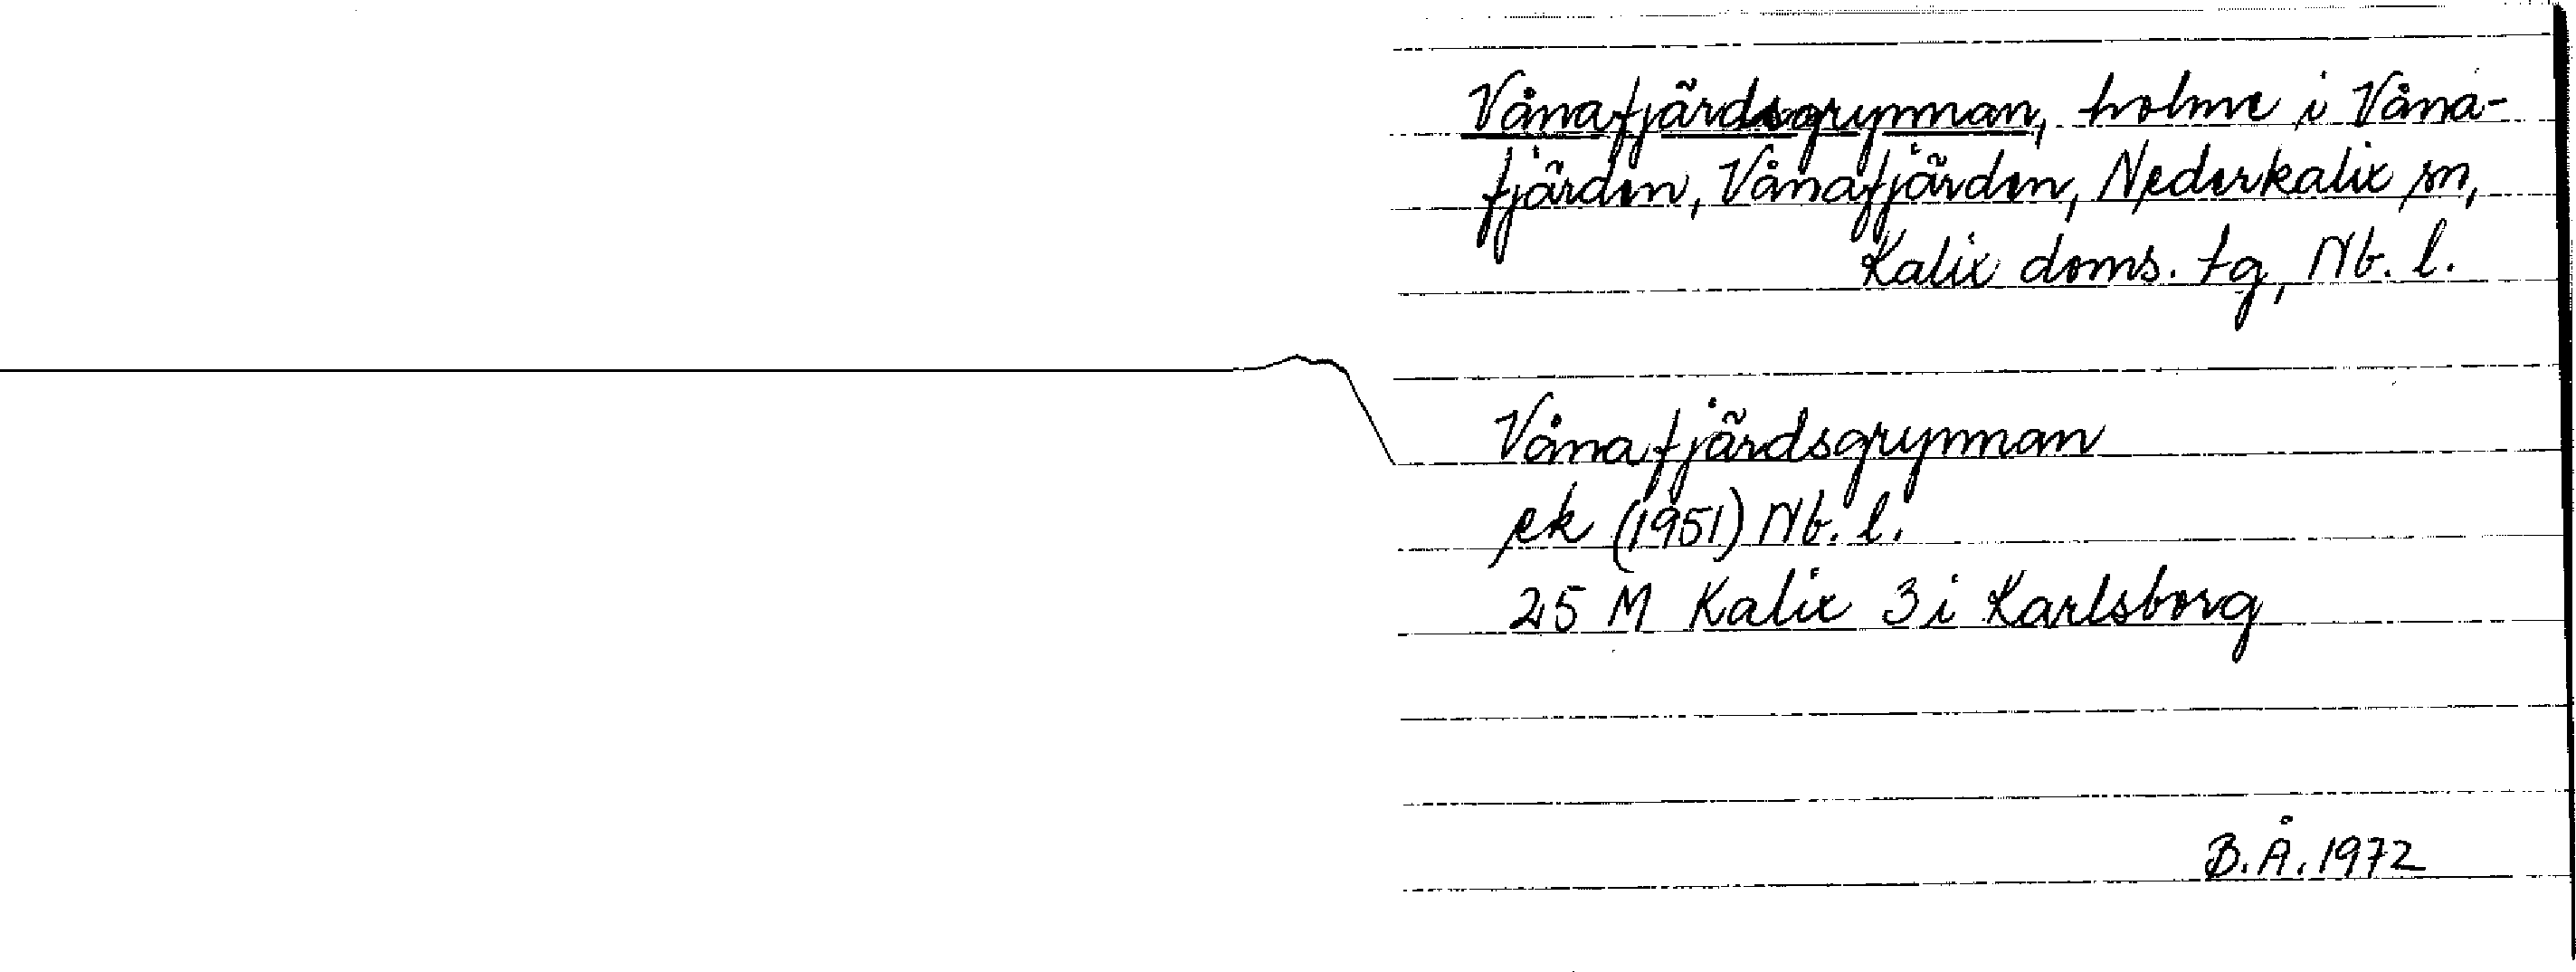 Vånafjärdsgrynnan, holme i Våna-
fjärden, Vånafjärden, Nederkalix sn,
Kalix doms. tg, Nb. l.
Vånafjärdsgrynnan
ek (1951) Nb. l.
25 M Kalix 3 i Karlsborg
B.Å. 1972